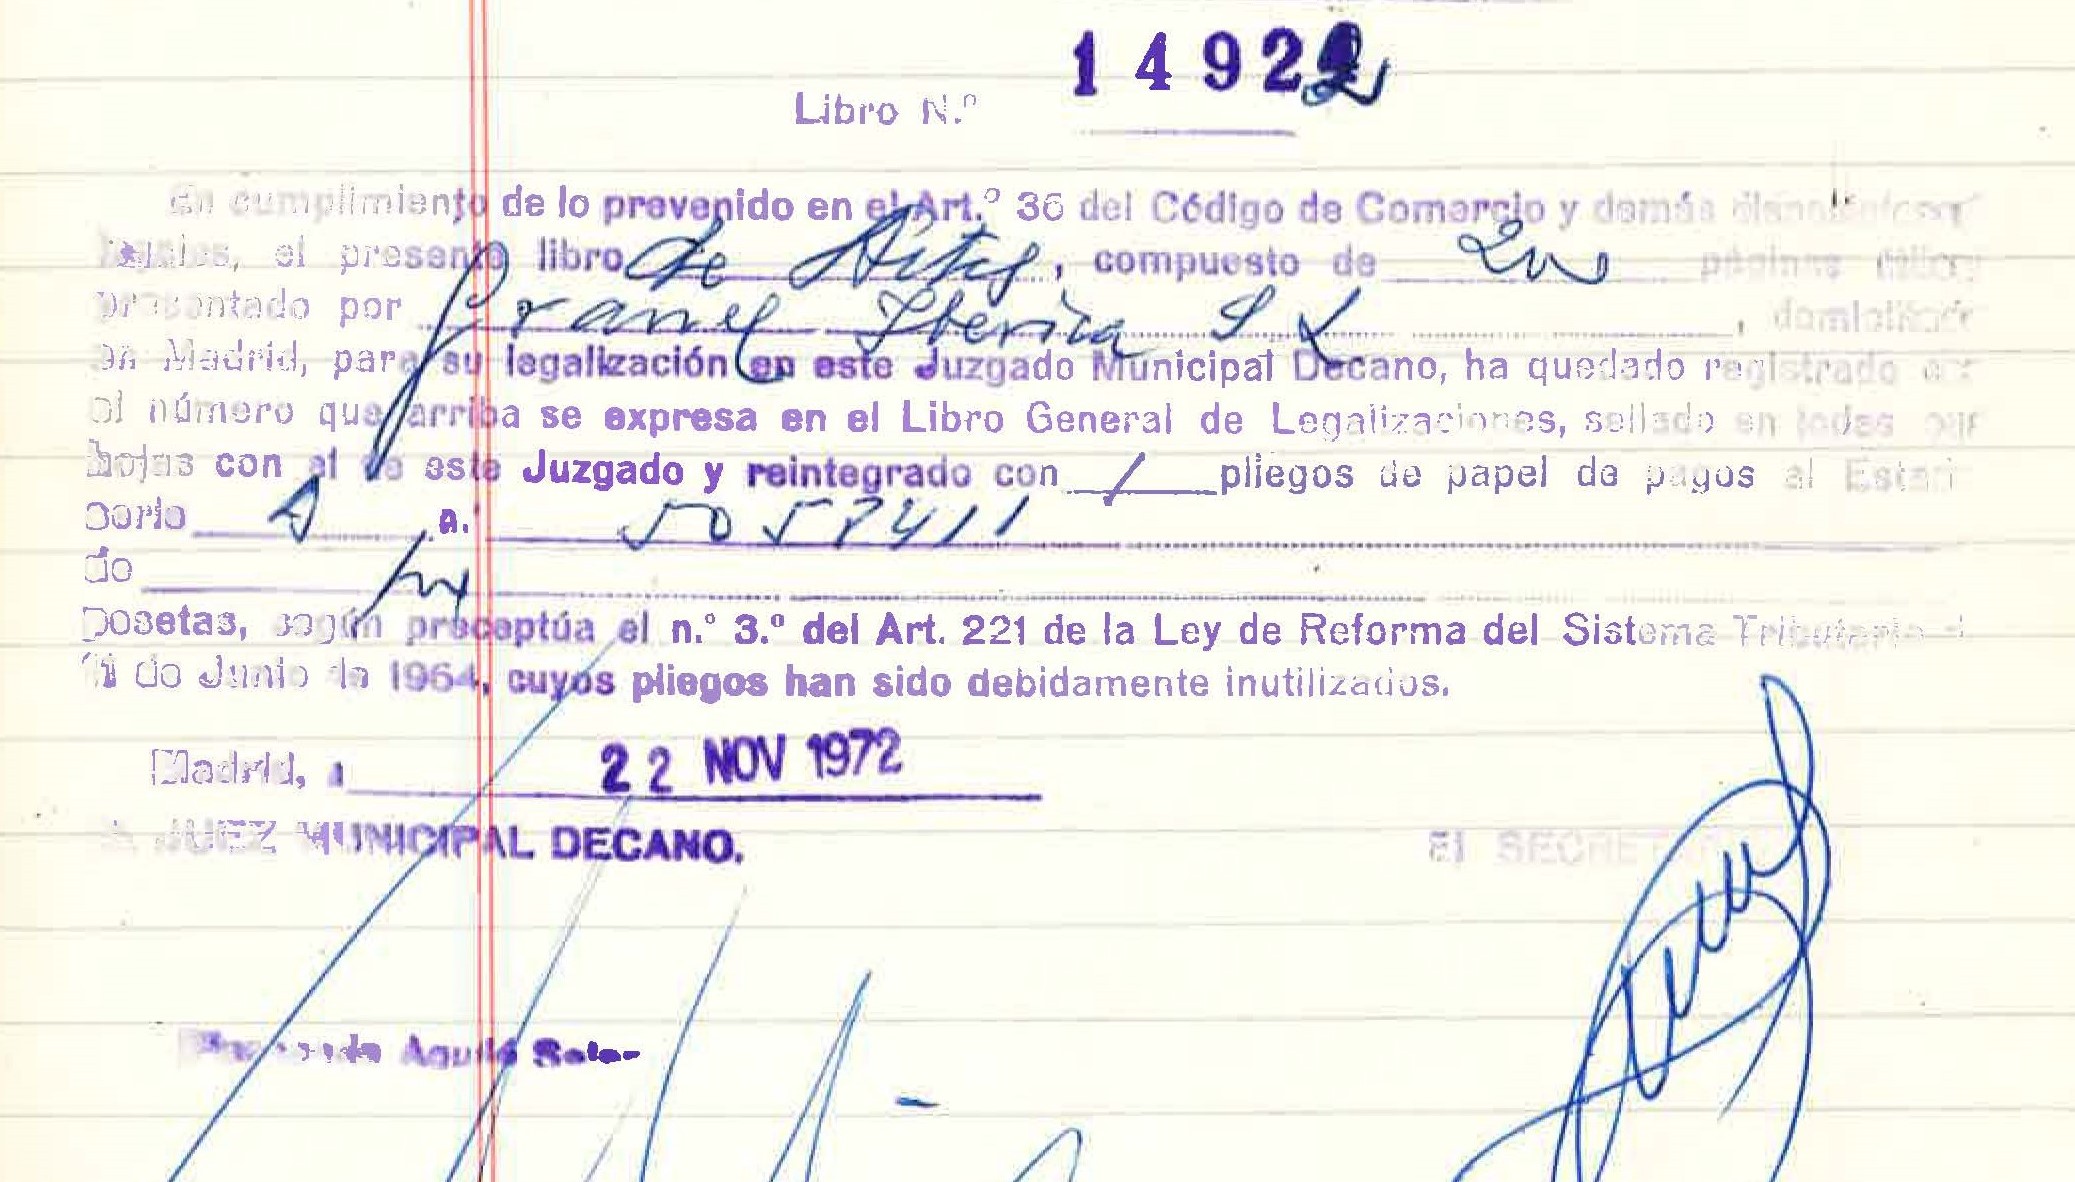 14922
Libro N.º
En cumplimiento de lo prevenido en el Art.º 36 del Código de Comercio y demás
el presente libro de Actas, compuesto de 200 páginas
presentado por Granel Iberica S L,
en Madrid, para su legalización en este Juzgado Municipal Decano, ha quedado registrado
el número que arriba se expresa en el Libro General de Legalizaciones, sellado en todas sus
hojas con el de este Juzgado y reintegrado con 1 pliegos de papel de pagos al Estado
serie A a.
de
pesetas, según preceptúa el n.º 3.º del Art. 221 de la Ley de Reforma del Sistema Tributario
11 de Junio de 1964, cuyos pliegos han sido debidamente inutilizados.
Madrid, a 22 NOV 1972
JUEZ MUNICIPAL DECANO.
El SECRETARIO